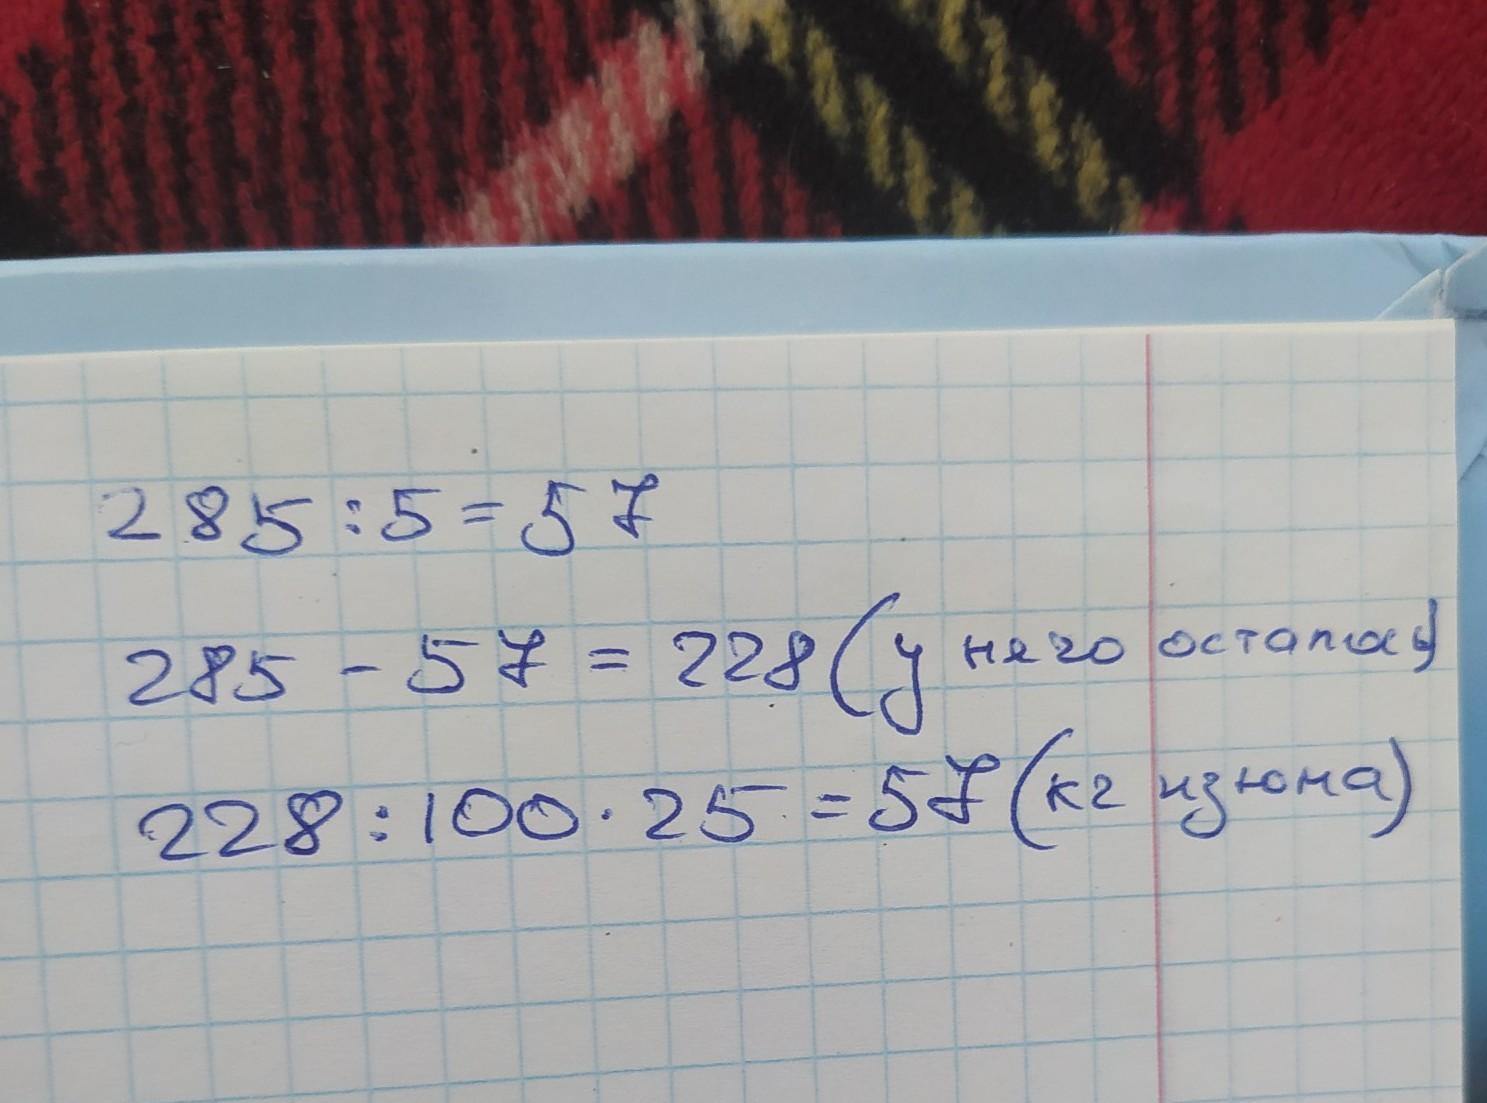 285 : 5 = 57
285 - 57 = 228 (у него осталось)
228 : 100 · 25 = 57 (кг изюма)